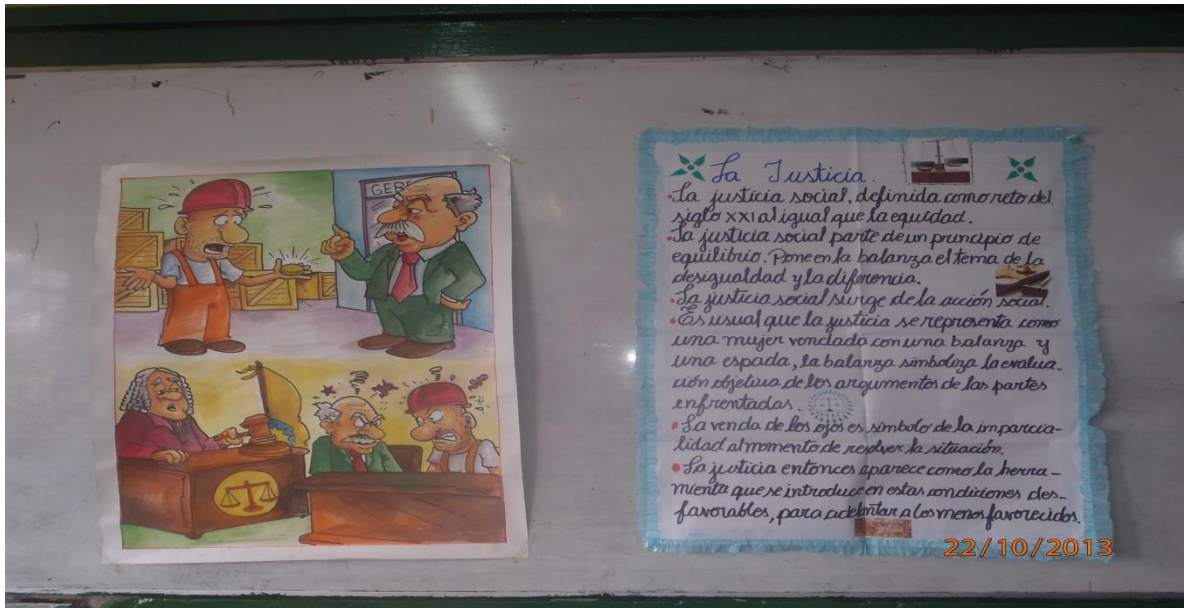 GERE
La Justicia.
La justicia social, definida como reto del
siglo XXI al igual que la equidad.
La justicia social parte de un principio de
equilibrio. Pone en la balanza el tema de la
desigualdad y la diferencia.
La justicia social surge de la acción social.
Es usual que la justicia se representa como
una mujer vendada con una balanza y
una espada, la balanza simboliza la evalua-
ción objetiva de los argumentos de las partes
enfrentadas.
La venda de los ojos es símbolo de la imparcia-
lidad al momento de resolver la situación.
La justicia entonces aparece como la herra-
mienta que se introduce en estas condiciones des-
favorables, para adelantar a los menos favorecidos.
22/10/2013